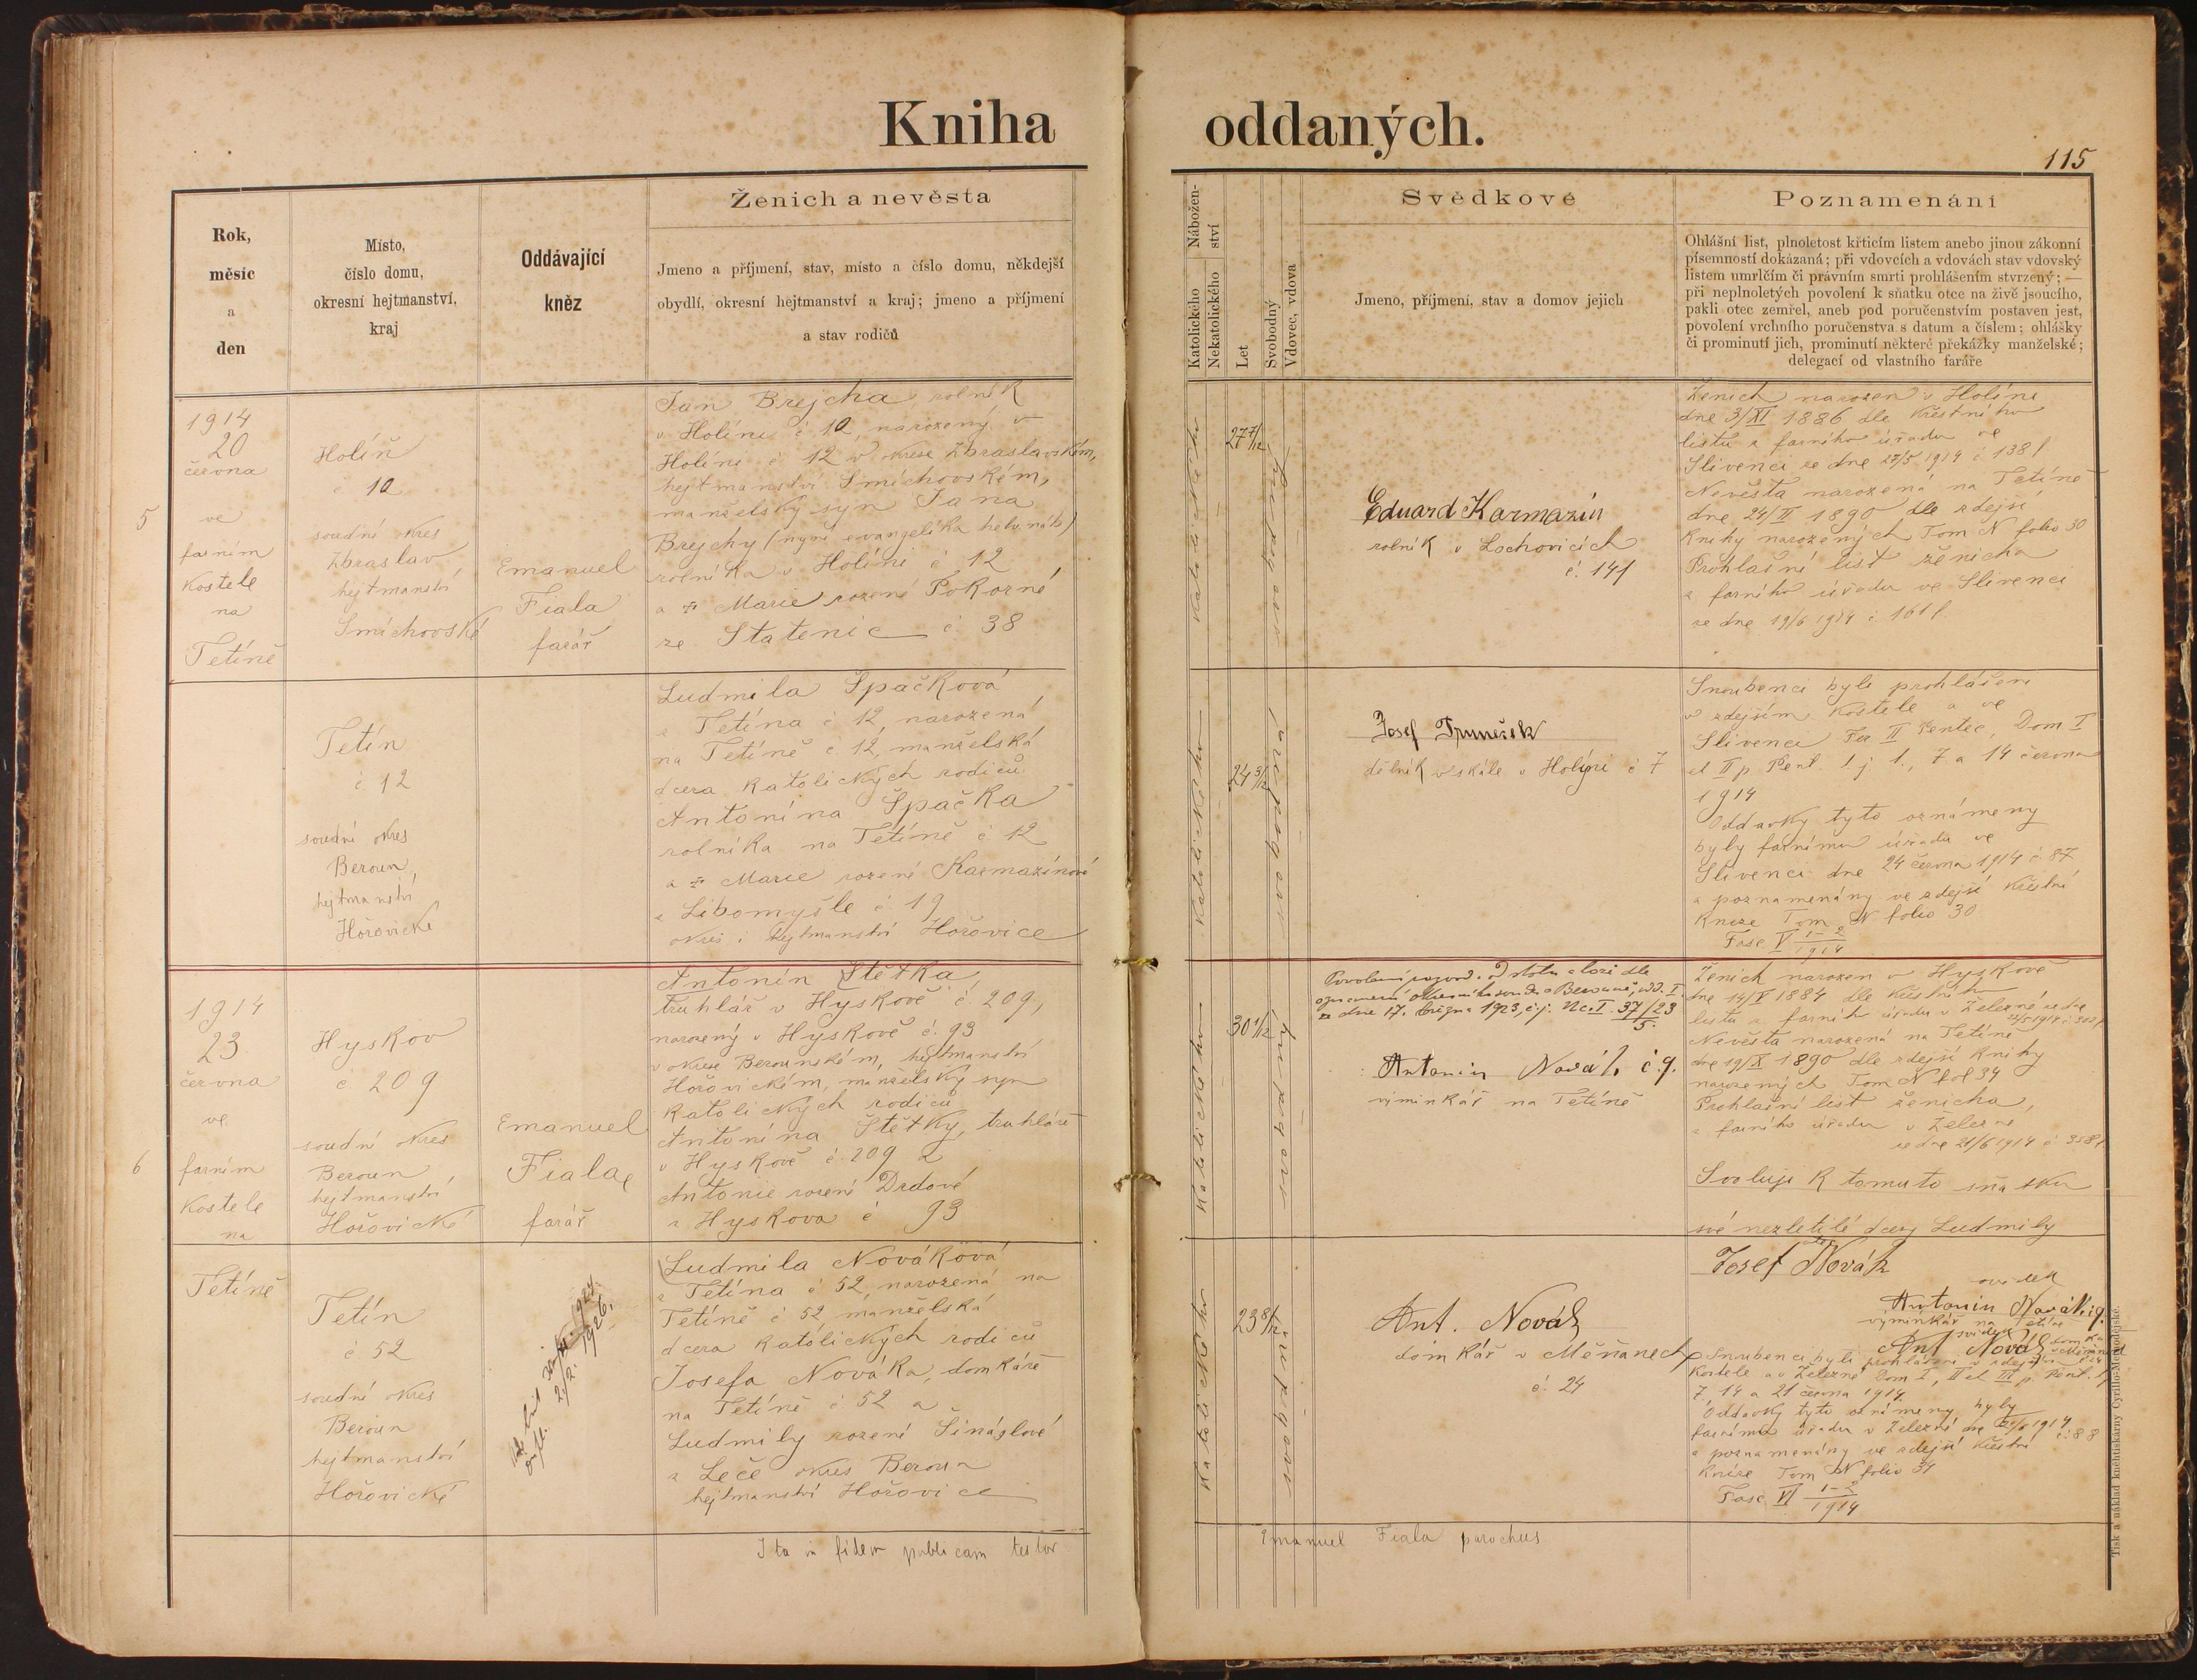 Kniha oddaných.
115
Rok,
měsíc
a
den
Místo,
číslo domu,
okresní hejtmanství,
kraj
Oddávající
kněz
Ženich a nevěsta
Jmeno a příjmení, stav, místo a číslo domu, někdejší
obydlí, okresní hejtmanství a kraj; jmeno a příjmení
a stav rodičů
Nábožen-
ství
Katolického
Nekatolického
Let
Svobodný
Vdovec, vdova
Svědkové
Jmeno, příjmení, stav a domov jejich
Poznamenání
Ohlášní list, plnoletost křticím listem anebo jinou zákonní
písemností dokázaná; při vdovcích a vdovách stav vdovský
listem umrlčím či právním smrti prohlášením stvrzený; —
při neplnoletých povolení k sňatku otce na živě jsoucího,
pakli otec zemřel, aneb pod poručenstvím postaven jest,
povolení vrchního poručenstva s datum a číslem; ohlášky
či prominutí jich, prominutí některé překážky manželské;
delegací od vlastního faráře
5
1914
20
června
ve
farním
Kostele
na
Tetíně
Holíň
č 10
soudní okres
Zbraslav
hejtmanství
Smíchovské
Emanuel
Fiala
farář
Jan Brejcha rolník
v Holíni č 10, narozený v
Holíni č 12 v okrese Zbraslavském,
hejtmanství Smíchovském,
manželský syn Jana
Brejchy (nyní evangelíka helv.
rolníka v Holíni č 12
a Marie rozené Pokorné
ze Statenic č 38
Katolického
27 7/12
svobodný
Eduard Karmazín
rolník v Lochovicích
č. 141
Ženich narozen v Holíni
dne 3/XI 1886 dle křestního
listu z farního úřadu ve
Slivenci ze dne 27/5 1914 č 138/
Nevěsta narozená na Tetíně
dne 24/II 1890 dle zdejší
Knihy narozených Tom N folio 30
Prohlašní list ženicha
z farního úřadu ve Slivenci
ze dne 19/6 1914 č 161/
Tetín
č 12
soudní okres
Beroun,
hejtmanství
Hořovické
Ludmila Špačková
z Tetína č 12, narozená
na Tetíně č 12, manželská
dcera katolických rodičů
Antonína Špačka
rolníka na Tetíně č 12
a Marie rozené Karmazínové
z Libomyšle č 19
okres i hejtmanství Hořovice
Katolického
24 3/12
svobodná
Josef
dělník v skále v Holyni č 7
Snoubenci byli prohlášeni
v zdejším Kostele a ve
Slivenci Fer II Pentec, Dom I
et II p Pent. t. j. 1., 7 a 14 června
1914
Oddavky tyto oznámeny
byly farnímu úřadu ve
Slivenci dne 24 června 1914 č 87
a poznamenány ve zdejší Křestní
Knize Tom N folio 30
Fasc V 1-2/1914
6
1914
23
června
ve
farním
Kostele
na
Tetíně
Hyskov
č 209
soudní okres
Beroun
hejtmanství
Hořovické
Emanuel
Fiala,
farář
Antonín Štětka,
truhlář v Hyskově č 209,
narozený v Hyskově č. 93
v okrese Berounském, hejtmanství
Hořovickém, manželský syn
Katolických rodičů
Antonína Štětky, truhláře
v Hyskově č 209 a
Antonie rozené Drdové
z Hyskova č 93
Katolického
30 1/12
svobodný
Povolený rozvod od stolu a lože dle
oznámení okresního soudu v Berouně, odd. I.
ze dne 17. března 1923, č.j. Nc. I. 37/23
5.
Antonin Novák č 9.
výminkář na Tetíně
Ženich narozen v Hyskově
dne 14/V 1884 dle křestního
listu z farního úřadu v Železné ze dne
Nevěsta narozená na Tetíně
dne 19/X 1890 dle zdejší Knihy
narozených Tom N fol 34
Prohlašní list ženicha,
z farního úřadu v Železné
ze dne 21/6 1914 č 358/
Svoluji k tomuto sňatku
své nezletilé dcery Ludmily
Josef Novák
Antonin Novák č 9.
výminkář na Tetíně
svědek
Ant Novák
Tetín
č 52
soudní okres
Beroun
hejtmanství
Hořovické
2./2. 1926.
Ludmila Nováková
z Tetína č 52, narozená na
Tetíně č 52, manželská
dcera Katolických rodičů
Josefa Nováka, domkáře
na Tetíně č 52 a
Ludmily rozené Šináglové
z Leče okres Beroun
hejtmanství Hořovice
Katolického
23 8/12
svobodná
Ant. Novák
domkář v Měňanech
č. 24
Snoubenci byli prohlášeni v zdejším
Kostele a v Železné Dom I, II et III p. Pent. t. j.
7, 14 a 21 června 1914.
Oddavky tyto oznámeny byly
farnímu úřadu v Železné dne 1914 č 88
a poznamenány ve zdejší Křestní
Knize Tom N folio 34
Fasc VI 1-2/1914
Ita in fidem publicam testor
Emanuel Fiala parochus
Tisk a náklad kněhtiskárny Cyrillo-Methodějské.